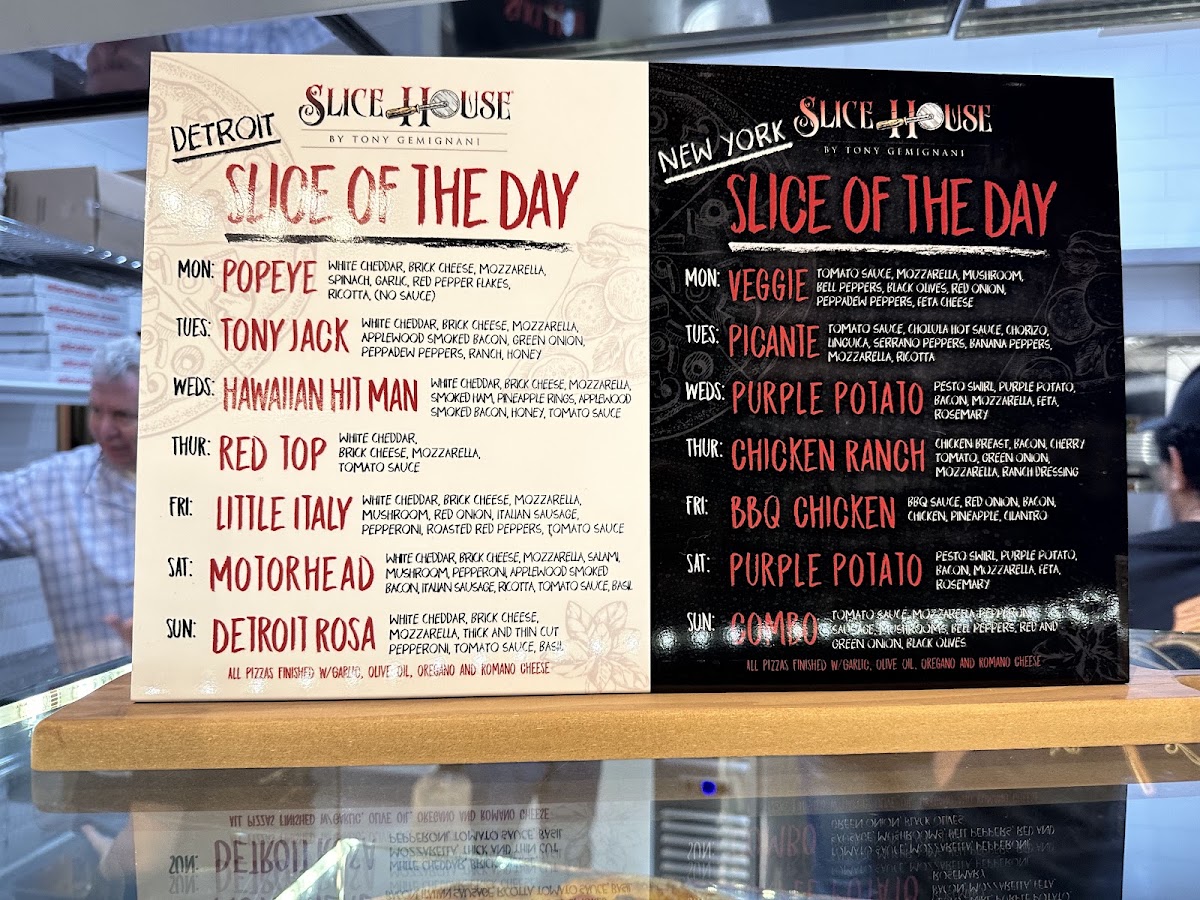 DETROIT
SLICE HOUSE
BY TONY GEMIGNANI
SLICE OF THE DAY
MON: POPEYE WHITE CHEDDAR, BRICK CHEESE, MOZZARELLA,
SPINACH, GARLIC, RED PEPPER FLAKES,
RICOTTA, (NO SAUCE)
TUES: TONY JACK WHITE CHEDDAR, BRICK CHEESE, MOZZARELLA,
APPLEWOOD SMOKED BACON, GREEN ONION,
PEPPADEW PEPPERS, RANCH, HONEY
WEDS: HAWAIIAN HIT MAN WHITE CHEDDAR, BRICK CHEESE, MOZZARELLA,
SMOKED HAM, PINEAPPLE RINGS, APPLEWOOD
SMOKED BACON, HONEY, TOMATO SAUCE
THUR: RED TOP WHITE CHEDDAR,
BRICK CHEESE, MOZZARELLA,
TOMATO SAUCE
FRI: LITTLE ITALY WHITE CHEDDAR, BRICK CHEESE, MOZZARELLA,
MUSHROOM, RED ONION, ITALIAN SAUSAGE,
PEPPERONI, ROASTED RED PEPPERS, TOMATO SAUCE
SAT: MOTORHEAD WHITE CHEDDAR, BRICK CHEESE, MOZZARELLA, SALAMI,
MUSHROOM, PEPPERONI, APPLEWOOD SMOKED
BACON, ITALIAN SAUSAGE, RICOTTA, TOMATO SAUCE, BASIL
SUN: DETROIT ROSA WHITE CHEDDAR, BRICK CHEESE,
MOZZARELLA, THICK AND THIN CUT
PEPPERONI, TOMATO SAUCE, BASIL
ALL PIZZAS FINISHED W/GARLIC, OLIVE OIL, OREGANO AND ROMANO CHEESE
NEW YORK
SLICE HOUSE
BY TONY GEMIGNANI
SLICE OF THE DAY
MON: VEGGIE TOMATO SAUCE, MOZZARELLA, MUSHROOM,
BELL PEPPERS, BLACK OLIVES, RED ONION,
PEPPADEW PEPPERS, FETA CHEESE
TUES: PICANTE TOMATO SAUCE, CHOLULA HOT SAUCE, CHORIZO,
LINGUICA, SERRANO PEPPERS, BANANA PEPPERS,
MOZZARELLA, RICOTTA
WEDS: PURPLE POTATO PESTO SWIRL, PURPLE POTATO,
BACON, MOZZARELLA, FETA,
ROSEMARY
THUR: CHICKEN RANCH CHICKEN BREAST, BACON, CHERRY
TOMATO, GREEN ONION,
MOZZARELLA, RANCH DRESSING
FRI: BBQ CHICKEN BBQ SAUCE, RED ONION, BACON,
CHICKEN, PINEAPPLE, CILANTRO
SAT: PURPLE POTATO PESTO SWIRL, PURPLE POTATO,
BACON, MOZZARELLA, FETA,
ROSEMARY
SUN: COMBO TOMATO SAUCE, MOZZARELLA, PEPPERONI,
SAUSAGE, MUSHROOMS, BELL PEPPERS, RED AND
GREEN ONION, BLACK OLIVES
ALL PIZZAS FINISHED W/GARLIC, OLIVE OIL, OREGANO AND ROMANO CHEESE